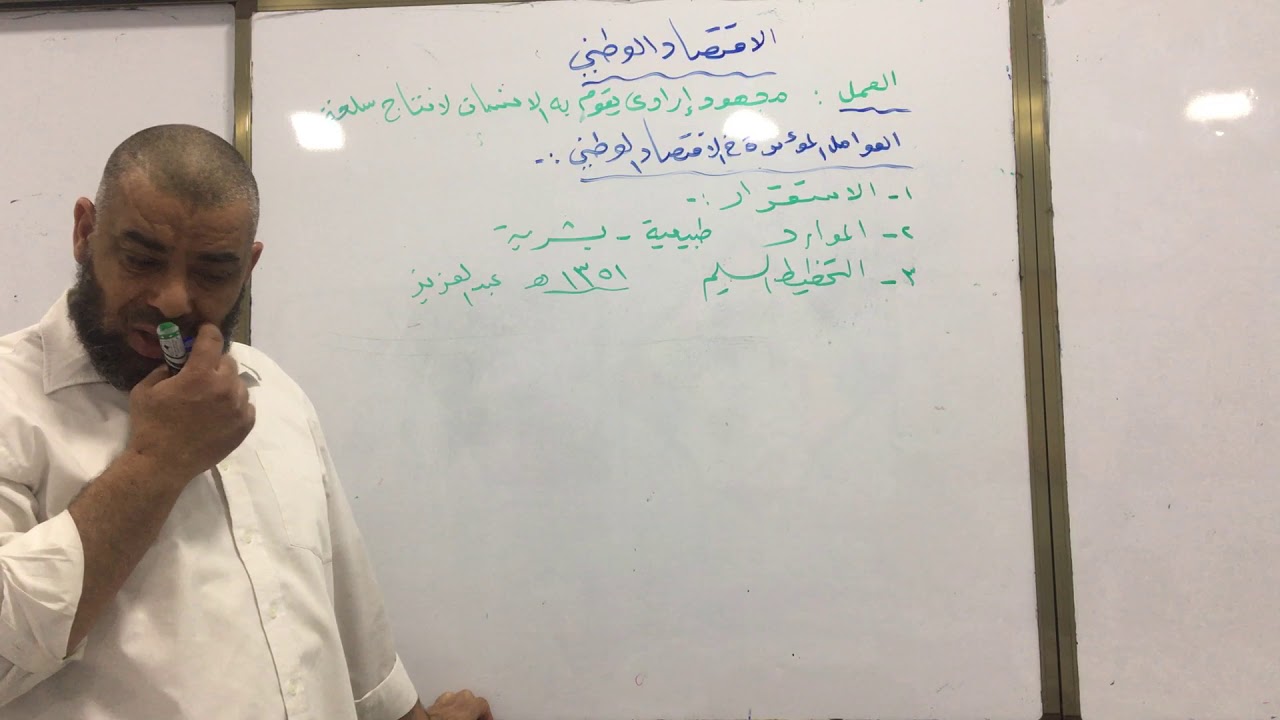 الاقتصاد الوطني
العمل : مجهود إرادى يقوم به الانسان لانتاج سلعة
العوامل المؤثرة في الاقتصاد الوطني :-
١- الاستقرار :-
٢- الموارد طبيعية - بشرية
٣- التخطيط السليم ١٣٥١ هـ عبد العزيز